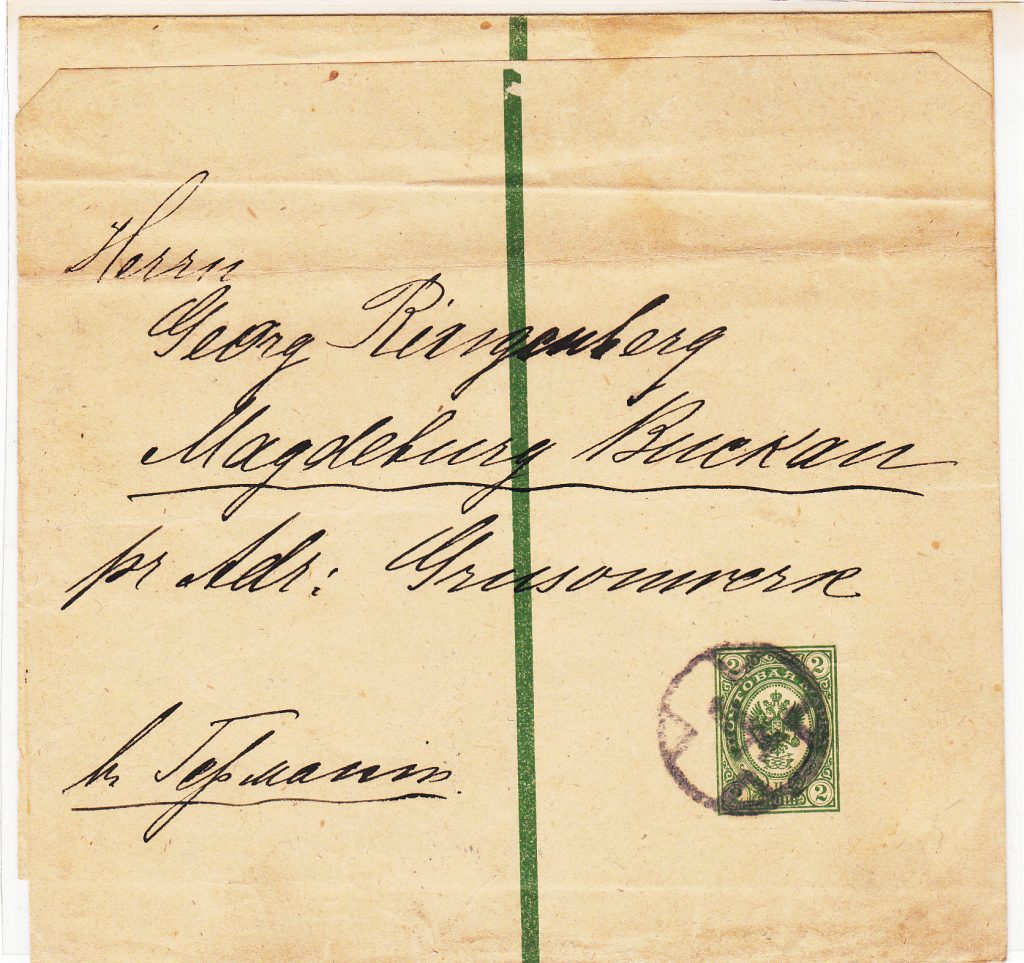 Herrn
Georg Ringenberg
Magdeburg Buckau
pr Adr: Grusonwerk
2 2
ПОЧТОВАЯ
2 2
въ Германію.